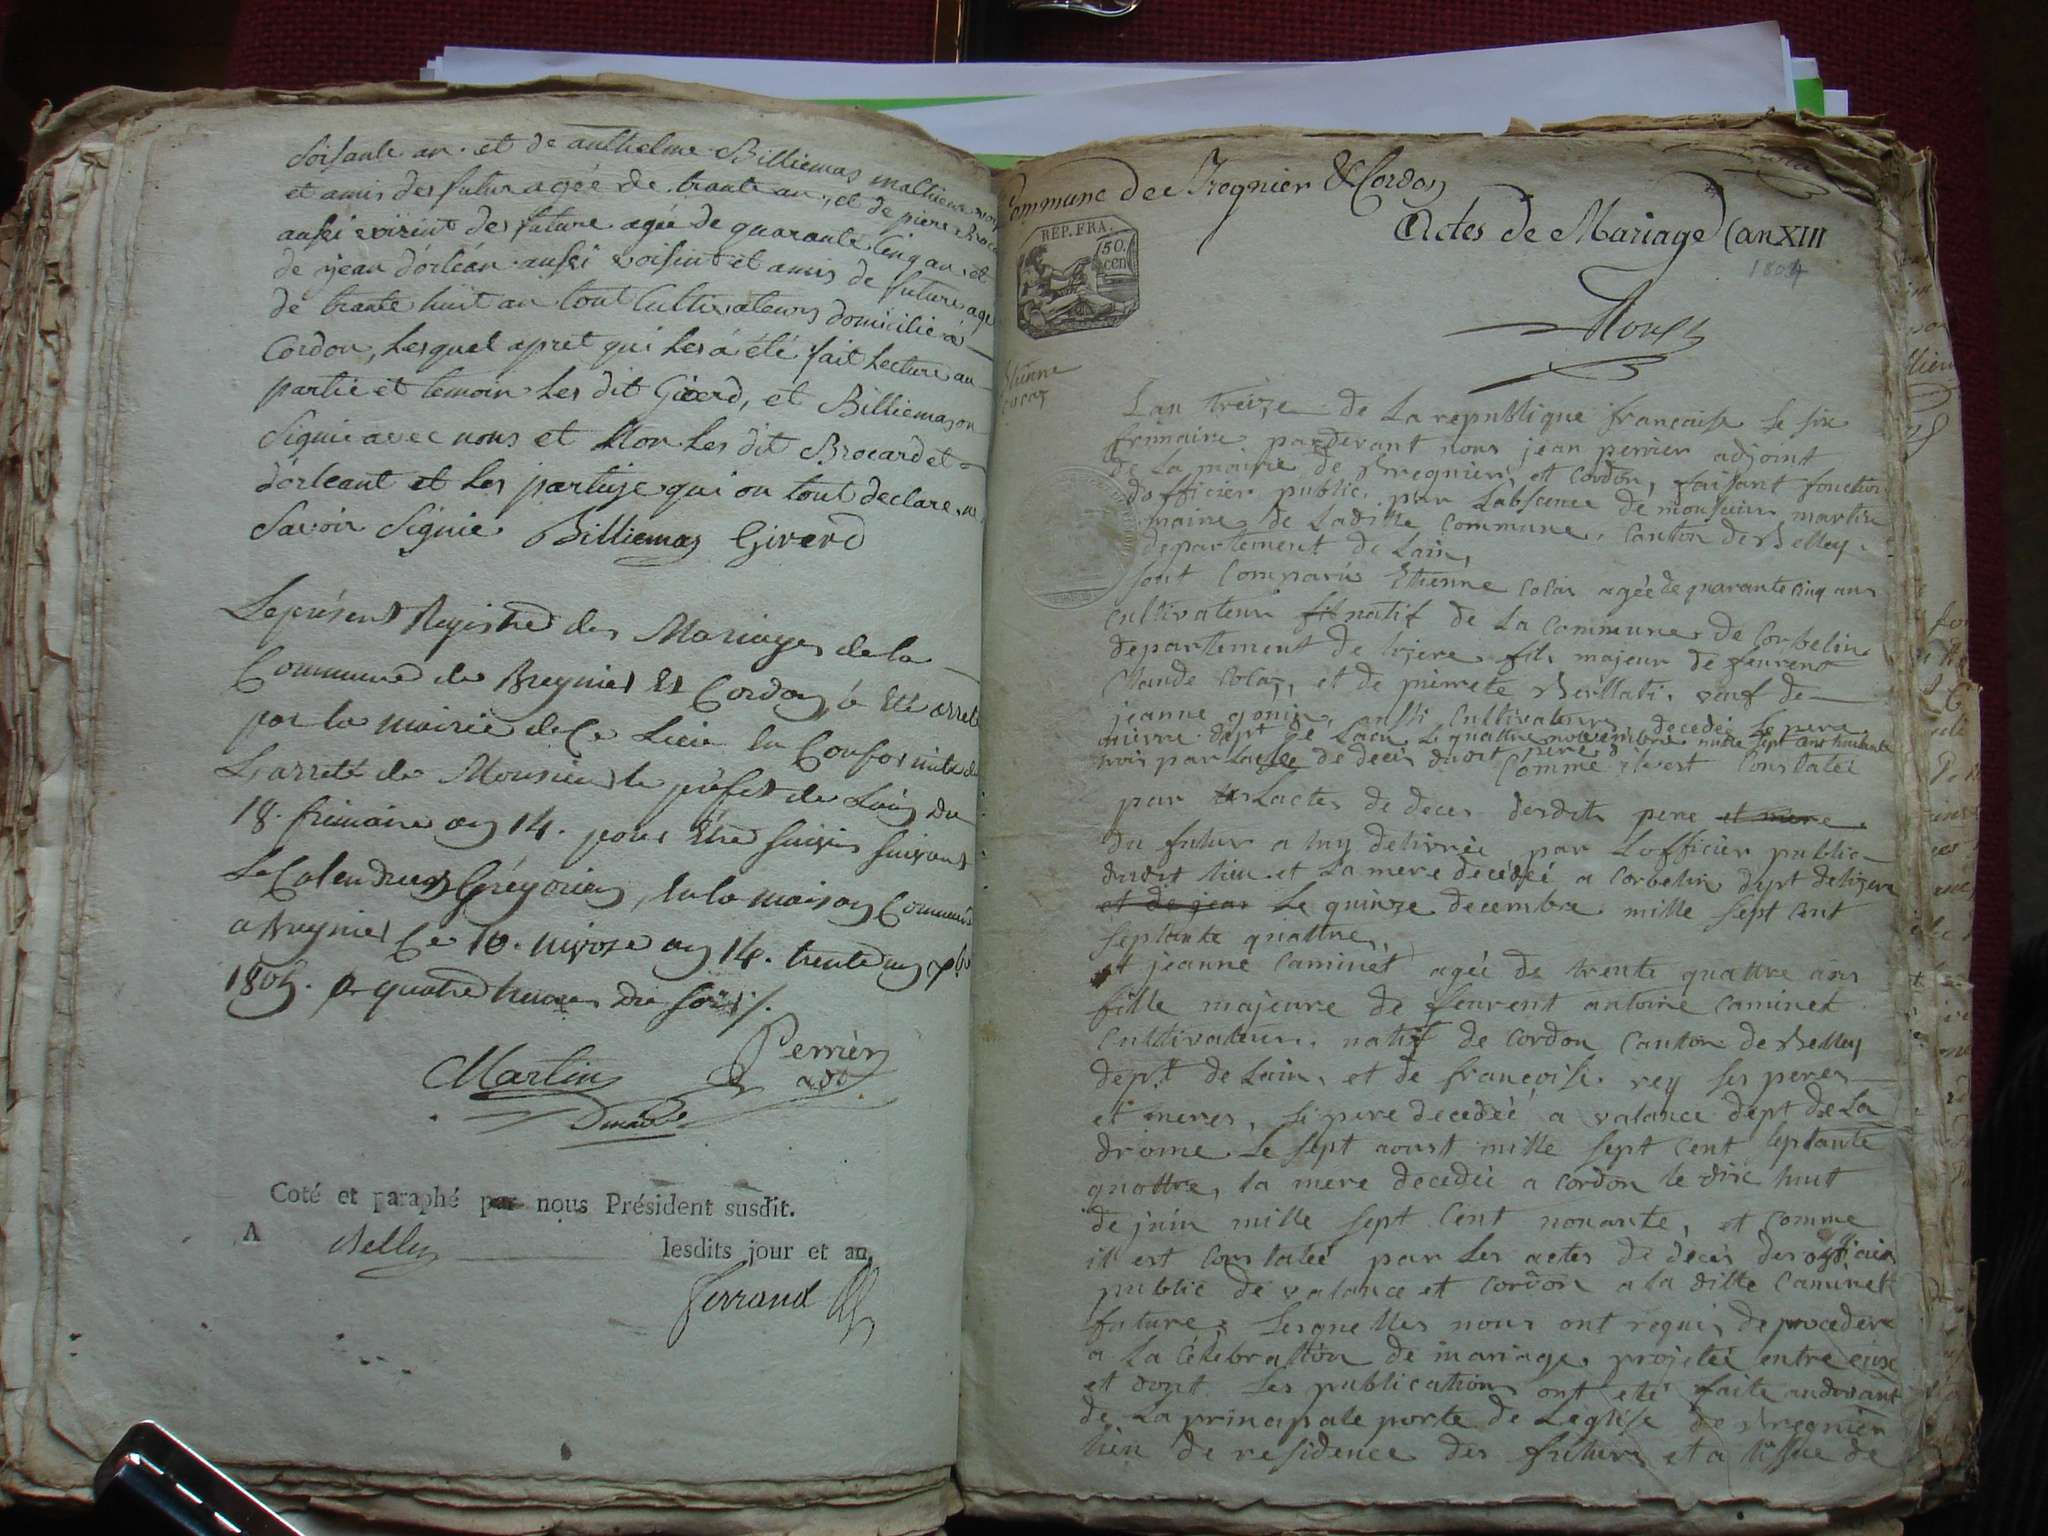 soisante an. et de anthelme Billiemas
et amis des futur agée de trante an, et de piere
aussi voisint des future agée de quarante cinq an et
de jean d'orléan aussi voisint et amis de future agé
de trante huit an tout Cultivateurs domicilié à
Cordon, Lesquel apret qui Les a été fait Lecture au
partie et temoin Les dit Girerd, et Billiemas on
Signie avec nous et Non Les dit Brocard et
d'orleant et Les partije qui on tout declare ne
Savoir Signie Billiemas Girerd
Le présent Registre des Mariages de la
Commune de Bregnier Et Cordon, à Eté arreté
par la mairie de Ce Lieu En Conformité de
L'arreté de Monsieur le préfet de L'ain du
18. frimaire an 14. pour Etre suivis suivant
Le Calendrier Grégorien, En la maison Commune
a Bregnier Ce 10. nivose an 14. trente un Xbre
1805. a quatre heures du soir /.
Martin
Perrier
adt
Coté et paraphé par nous Président susdit.
A Belley lesdits jour et an,
Ferrand
Commune de Bregnier & Cordon
Actes de Mariage (an XIII
1804
REP. FRA.
50.
cen
Etienne
Colas
L'an treize de La republique française Le six
frimaire pardevant nous jean perrier adjoint
de La mairie de Bregnier, et Cordon, faisant fonction
d'officier public, par L'absence de monsieur martin
maire de Ladille Commune, Canton de Belley
departement de Lain,
sont Comparus Etienne Colas agée de quarante cinq ans
cultivateur fil natif de La commune de Corbelin
departement de lizere fils majeur de feurent
Claude Colas, et de pierrete veuf de
jeanne gonin, aussi Cultivatours, decedée Le pere
dept de Lain Le quattre novembre mille sept ans huitante
trois par de deces dudit pere Comme il est Constatée
par les Lactes de deces desdits pere et mere
du futur a luy delivrée par Lofficier public
dudit lieu et La mere decédéé a Corbelin dept de lizere
et de jean Le quinze decembre mille sept cent
septante quattre,
et jeanne Caminet agée de trente quattre ans
fille majeure de feurent antoine Caminet
Cultivateur, natif de Cordon Canton de Belley
dept de Lain, et de françoise rey ses peres
et meres, le pere decedéé a valance dept de La
drome Le sept aoust mille sept cent septante
quattre, la mere decedéé a Cordon le dix huit
de juin mille sept Cent nonante, et comme
il est Constatéé par Les actes de deces des officiers
public de valance et Cordon a la dille Caminet
future, Lesquelles nous ont requis de proceder
a La Célébrattion de mariage projetéé entre eux
et dont Les publications ont eté faite audevant
de La principale porte de Léglise de Bregnier
lieu de residence des futurs et a lissue de